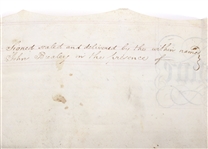 Signed sealed and delivered by the within named
John Barlow in the presence of